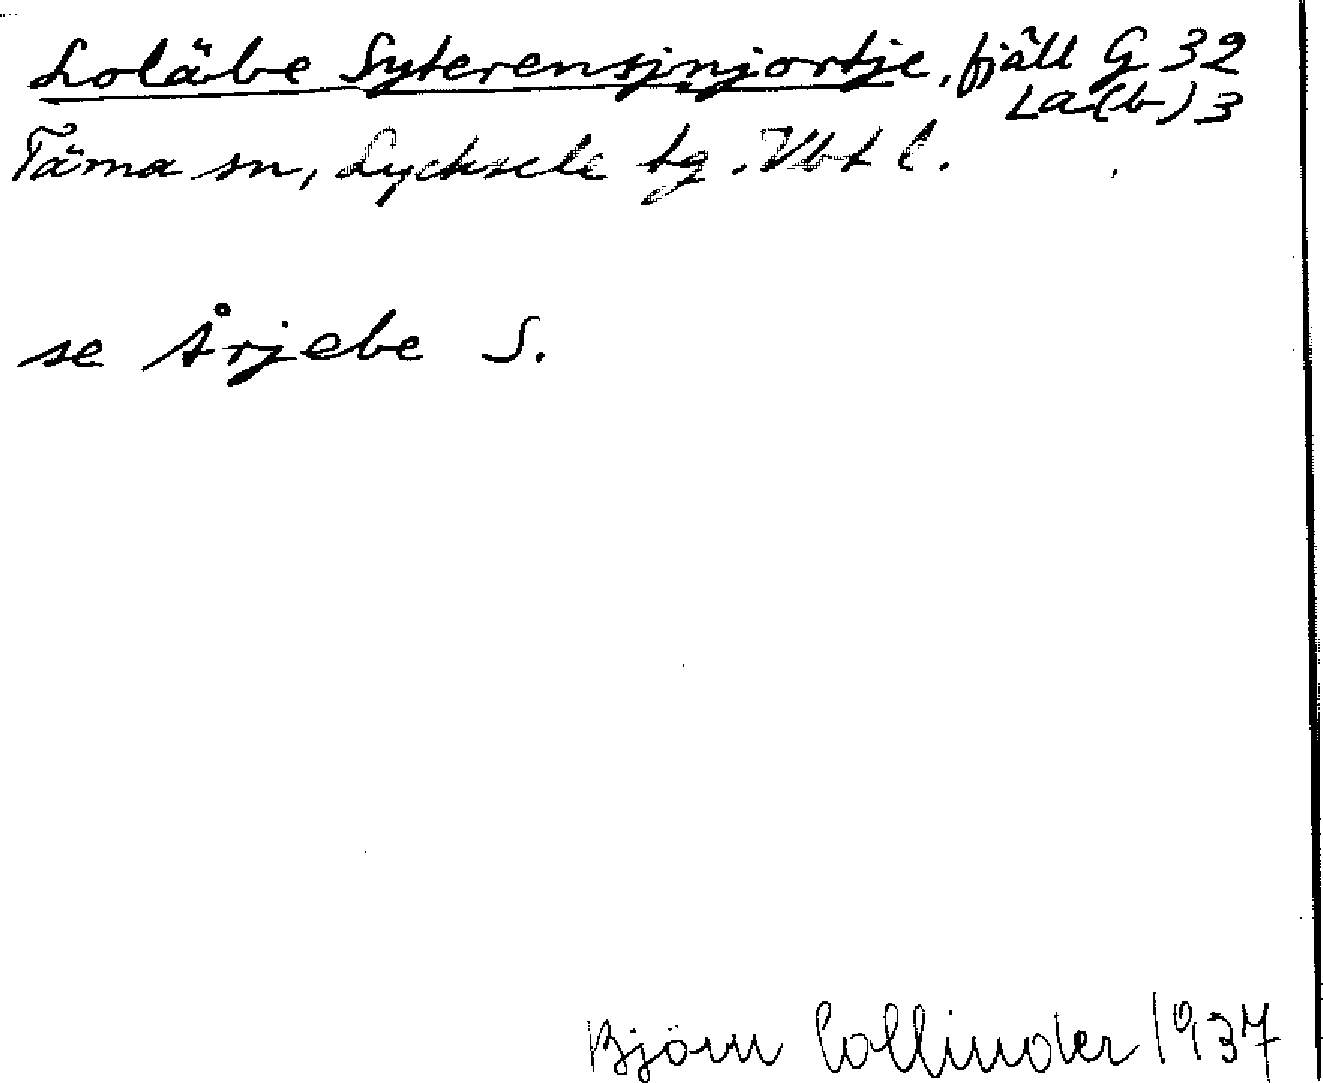 Loläbe Syterensjnjortje, fjäll G 32
La(b) 3
Tärna sn, Lycksele tg. Vbt l.
se Årjebe S.
Björn Collinder 1937